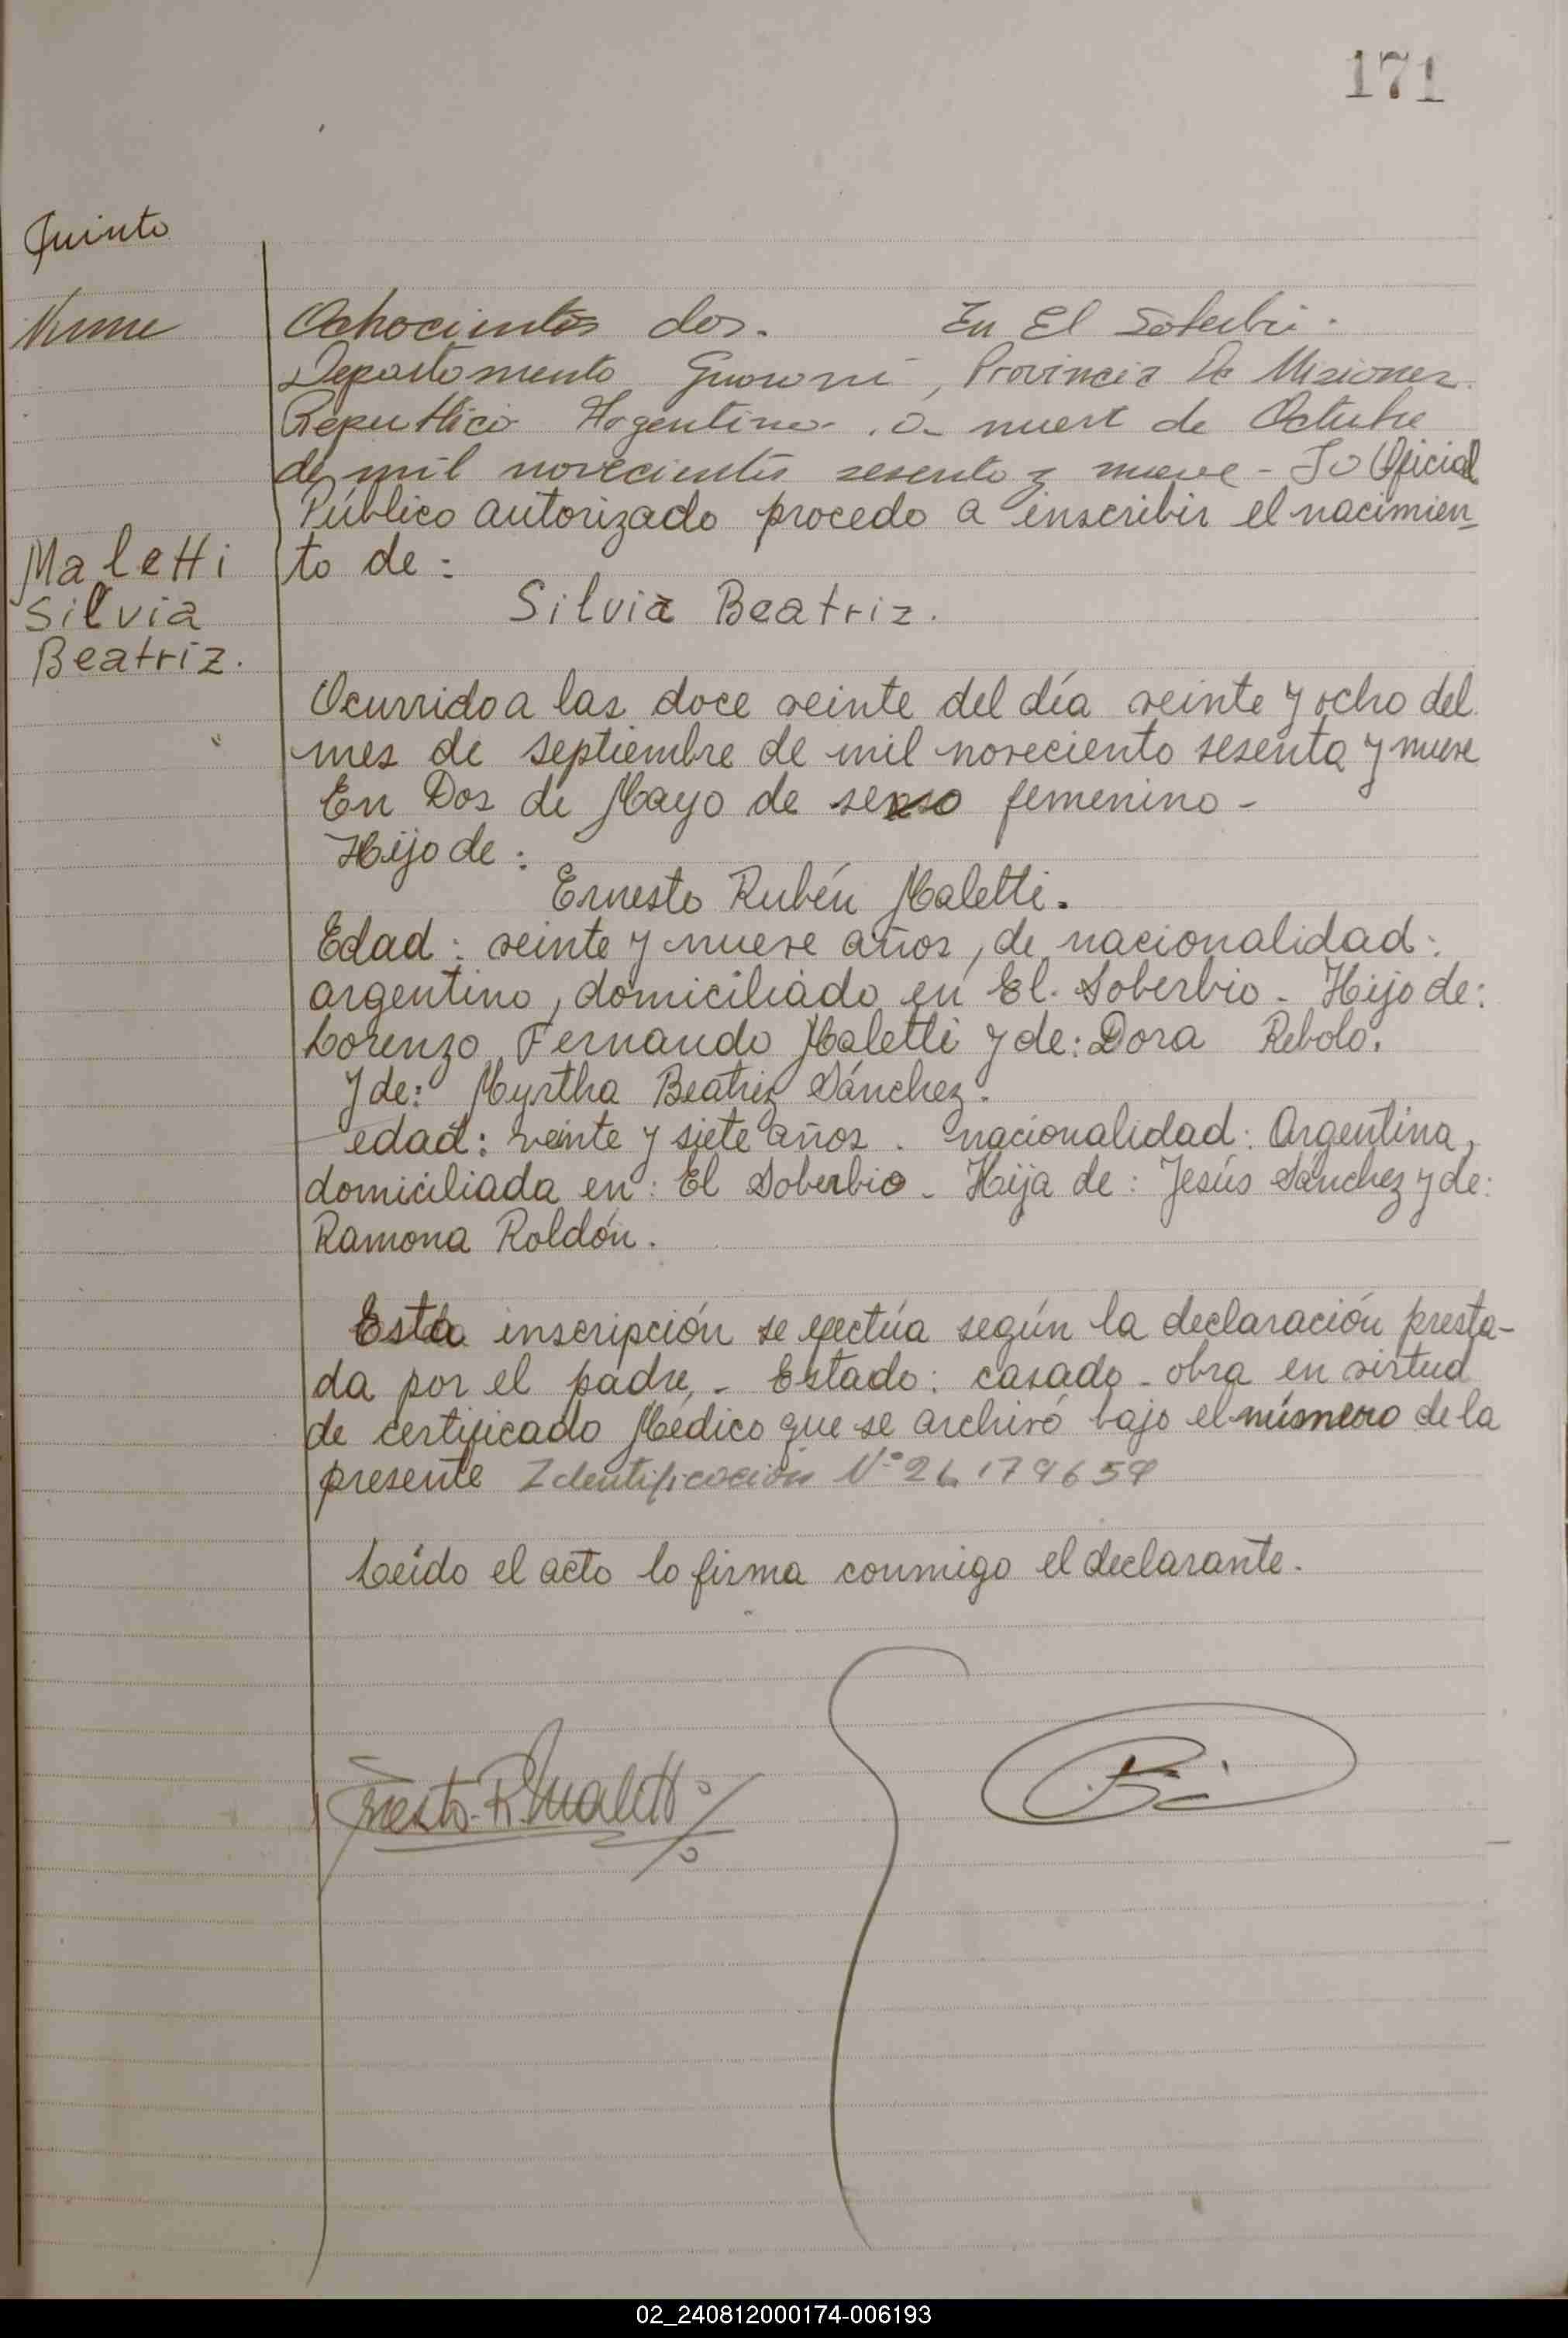 171
Quinto
Nume Ochocientos dos. En El Soberbio.
Departamento Guaraní, Provincia De Misiones.
Republica Argentina. a nueve de Octubre
de mil novecientos sesenta y nueve - Yo Oficial
Público autorizado procedo a inscribir el nacimien_
Maletti to de:
Silvia Silvia Beatriz.
Beatriz.
Ocurrido a las doce veinte del día veinte y ocho del
mes de septiembre de mil noveciento sesenta y nueve
En Dos de Mayo de sexso femenino -
Hijo de:
Ernesto Rubén Maletti.
Edad: veinte y nueve años, de nacionalidad:
argentino, domiciliado en El Soberbio - Hijo de:
Lorenzo Fernando Maletti y de: Dora Rebolo.
Y de: Myrtha Beatriz Sánchez.
edad: veinte y siete años. nacionalidad: Argentina,
domiciliada en: El Soberbio - Hija de: Jesús Sánchez y de:
Ramona Roldón.
Esta inscripción se efectúa según la declaración presta-
da por el padre, - Estado: casado - obra en virtud
de certificado Médico que se archivó bajo el número de la
presente Identificacion Nº 21.179659
Leído el acto lo firma conmigo el declarante.
Ernesto R Maletti
02_240812000174-006193